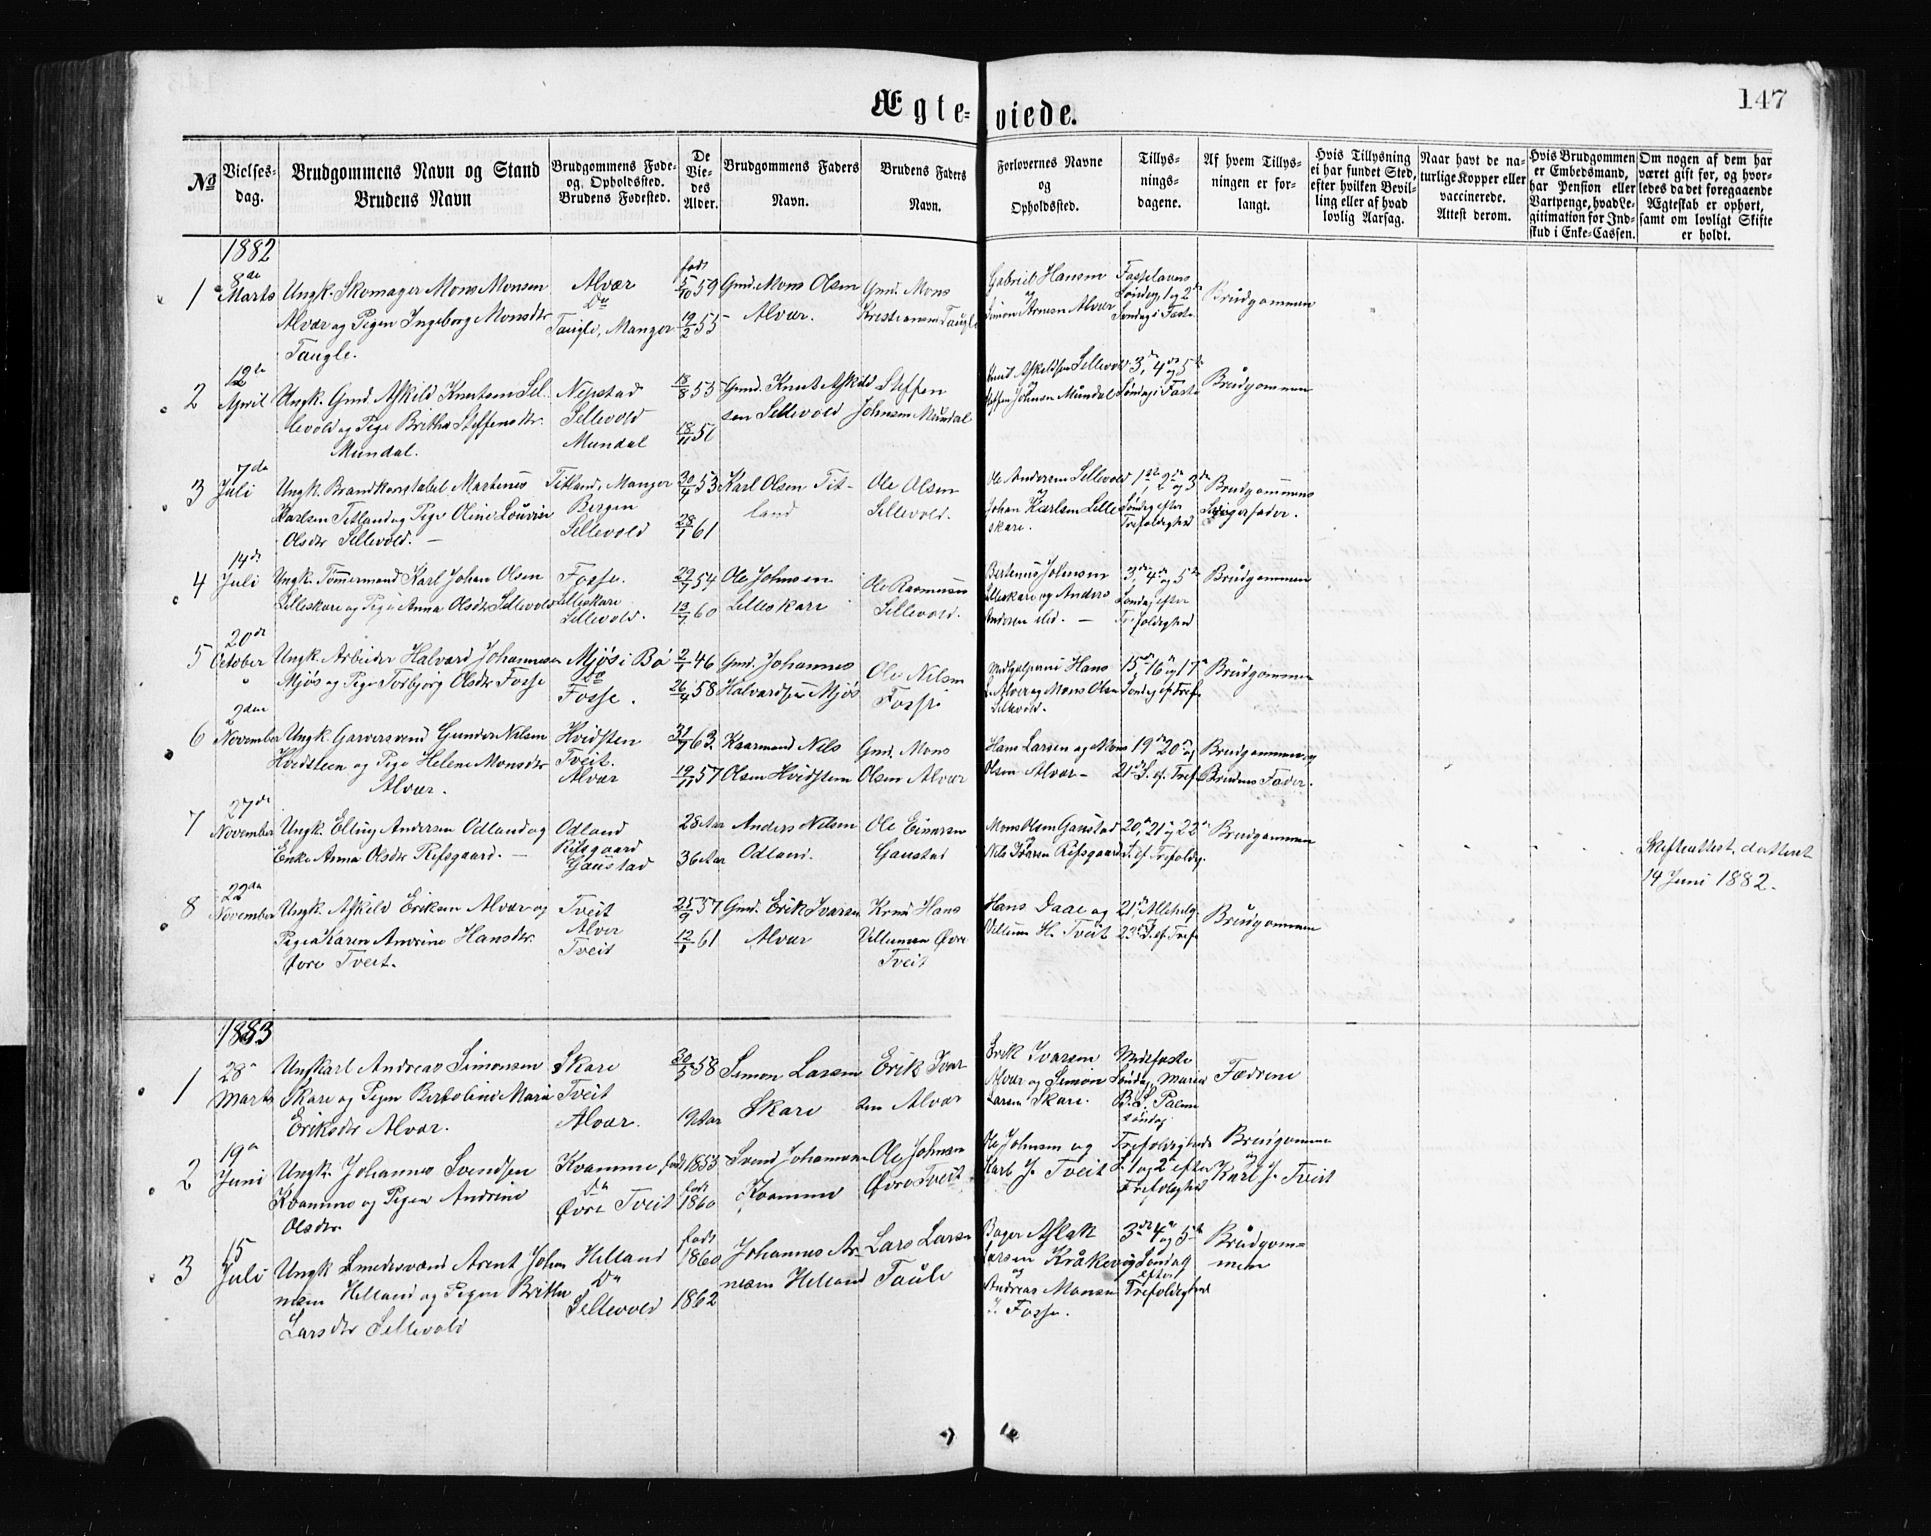 147
Ægte- viede.
No
Vielses-dag.
Brudgommens Navn og Stand
Brudens Navn
Brudgommens Føde- og Opholdssted.
Brudens Fødested.
De Viedes Alder.
Brudgommens Faders Navn.
Brudens Faders Navn.
Forlovernes Navne og Opholdssted.
Tillysningsdagene.
Af hvem Tillysningen er forlangt.
Hvis Tillysning ei har fundet Sted, efter hvilken Bevilling eller af hvad lovlig Aarsag.
Naar havt de naturlige Kopper eller vaccinerede. Attest derom.
Hvis Brudgommen er Embedsmand, har Pension eller Vartpenge, hvad Legitimation for Indskud i Enke-Cassen.
Om nogen af dem har været gift for, og hvorledes da det foregaaende Ægteskab er ophørt, samt om lovligt Skifte er holdt.
1882
1 8de Marts
Ungk. Skomager Mons Monsen
Alvær og Pigen Ingeborg Monsdtr
Taugle.
Alvær
Do
Taugle, Manger
født 5/10 59
19/2 55
Gmd. Mons Olsen
Alvær.
Gmd. Mons
Kristiansen Taugle
Gabriel Hansen
og
Simon Arnesen Alvær
Fastelavns
Søndag, 1 og 2
Søndag i Faste
Brudgommen
2 12te April
Ungk. Gmd. Askild Knutsen Sel-
levold og Pige Britha Steffensdtr.
Mundal.
Nepstad
Sellevold
Mundal
18/8 53
18/11 51
Gmd. Knut Askild
sen Sellevold
Steffen
Johnsen Mundal
Knut Askeldsen Sellevold
Steffen Johnsen Mundal
3, 4 og 5te
Søndag i Faste
Brudgommen
3 7de Juli
Ungk. Brandkonstabel Martenus
Karlsen Titland og Pige Oline Lovise
Olsdtr Sellevold. —
Titland, Manger
Bergen
Sellevold
20/4 53
28/1 61
Karl Olsen Tit-
land
Ole Olsen
Sellevold.
Ole Andersen Sellevold
og
Johan Karlsen Lille
skare.
1ste, 2de og 3de
Søndag efter
Trefoldighed
Brudgommens
Svigerfader.
4 14de Juli
Ungk. Tømermand Karl Johan Olsen
Lilleskare og Pige Anna Olsdtr Sellevold
Fosse.
Lilleskare
Sellevold.
54
60
Ole Johnsen
Lilleskare
Ole Rasmusen
Sellevold.
Bertenus Johnsen
Lilleskare og Anders
Andersen ibid. —
3de, 4de og 5te
Søndag efter
Trefoldighed
Brudgommen
5 20de October
Ungk. Arbeider Halvard Johannesen
Mjøs og Pige Torbjørg Olsdtr Fosse
Mjøs i Bø
Do
Fosse.
2/1 46
26/4 58
Gmd. Johannes
Halvardsen Mjøs
Ole Nilsen
Fosse
Hans
Alver og Mons Olsen
Sellevold.
15de 16de og 17de
Søndag ef. Tref.
Brudgommen
6 November
Ungk. Garversvend Gunder Nilsen
Hvidsteen og Pige Helene Monsdtr
Alvær.
Hvidsten
Tveit.
Alvær
31/7 63
19/11 57
Kaarmand Nils
Olsen Hvidsteen
Gmd. Mons
Olsen Alvær
Hans Larsen og Mons
Olsen Alvær —
19de 20de og
21de S. ef. Tref.
Brudgommen og
Brudens Fader.
7 27de November
Ungk. Elling Andersen Odland og
Enke Anna Olsdtr Refsgaard. —
Odland
Refsgaard
Gaustad
28 Aar
36 Aar
Anders Nilsen
Odland.
Ole Einersen
Gaustad
Mons Olsen Gaustad
Nils Refsgaard
20, 21 og 22
S. ef. Trefoldig.
Brudgommen
Skifteattest, datteret
14 Juni 1882.
8 22de November
Ungk. Askild Eriksen Alvær og
Pigen Karen Andrine Hansdtr.
Øvre Tveit.
Tveit
Alver
Tveit
25/9 57
12/1 61
Gmd. Erik Ivarsen
Alvær
Hans
Villumsen Øvre
Tveit
Hans Daae og
Villum H. Tveit
21, Allehelg.
23de S. ef. Tref.
Brudgommen
1883
1 28 Marts
Ungkarl Andreas Simonsen
Skare og Pigen Bertoline Marie
Eriksdtr Alvær.
Skare
Tveit
Alvær.
30/5 58
19 Aar
Simon Larsen
Skare
Erik Ivar
sen Alvær
Erik Ivarsen
Alvær og Simon
Larsen Skare.
Midfaste
Søndag, Maria
B. S. Palme
søndag
Fædrene
2 19 Juni
Ungk. Johannes Svendsen
Kvamme og Pigen Andrine
Olsdtr.
Kvamme
Do
Øvre Tveit
født 1853
født 1860
Svend Johannesen
Kvamme
Ole Johnsen
Øvre Tveit
Ole Johnsen og
Karl J. Tveit
Trefoldigheds
S. 1 og 2 efter
Trefoldighed
Brudgommen
og
Karl J. Tveit
3 15 Juli
Ungk Smedesvend Arent Johan
nesen Helland og Pigen Britha
Larsdtr Sellevold
Helland
Do
Sellevold
født 1860
1862
Johannes Ar-
nesen Helland
Lars Larsen
Taule
Bager Aslak
Larsen Kråkevig
og
Andreas Monsen
I. Fosse.
3de 4 og 5te
Søndag
efter
Trefoldighed
Brudgom-
men